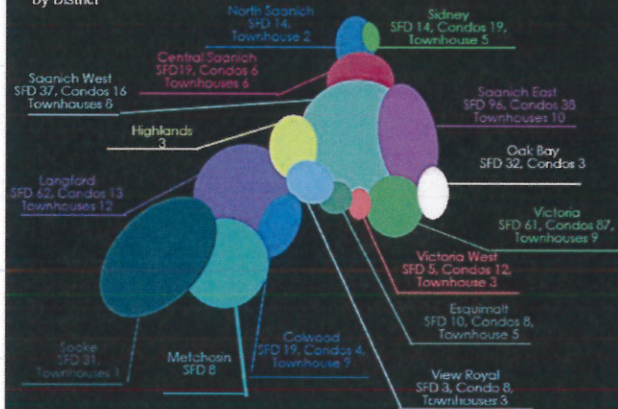 by District
North Saanich
SFD 14,
Townhouse 2
Sidney
SFD 14, Condos 19,
Townhouse 5
Central Saanich
SFD19, Condos 6
Townhouses 6
Saanich West
SFD 37, Condos 16
Townhouses 8
Saanich East
SFD 96, Condos 38
Townhouses 10
Highlands
3
Oak Bay
SFD 32, Condos 3
Langford
SFD 62, Condos 13
Townhouses 12
Victoria
SFD 61, Condos 87,
Townhouses 9
Victoria West
SFD 5, Condos 12,
Townhouse 3
Esquimalt
SFD 10, Condos 8,
Townhouse 5
Sooke
SFD 31,
Townhouses 1
Metchosin
SFD 8
Colwood
SFD 19, Condos 4,
Townhouse 9
View Royal
SFD 3, Condo 8,
Townhouses 3